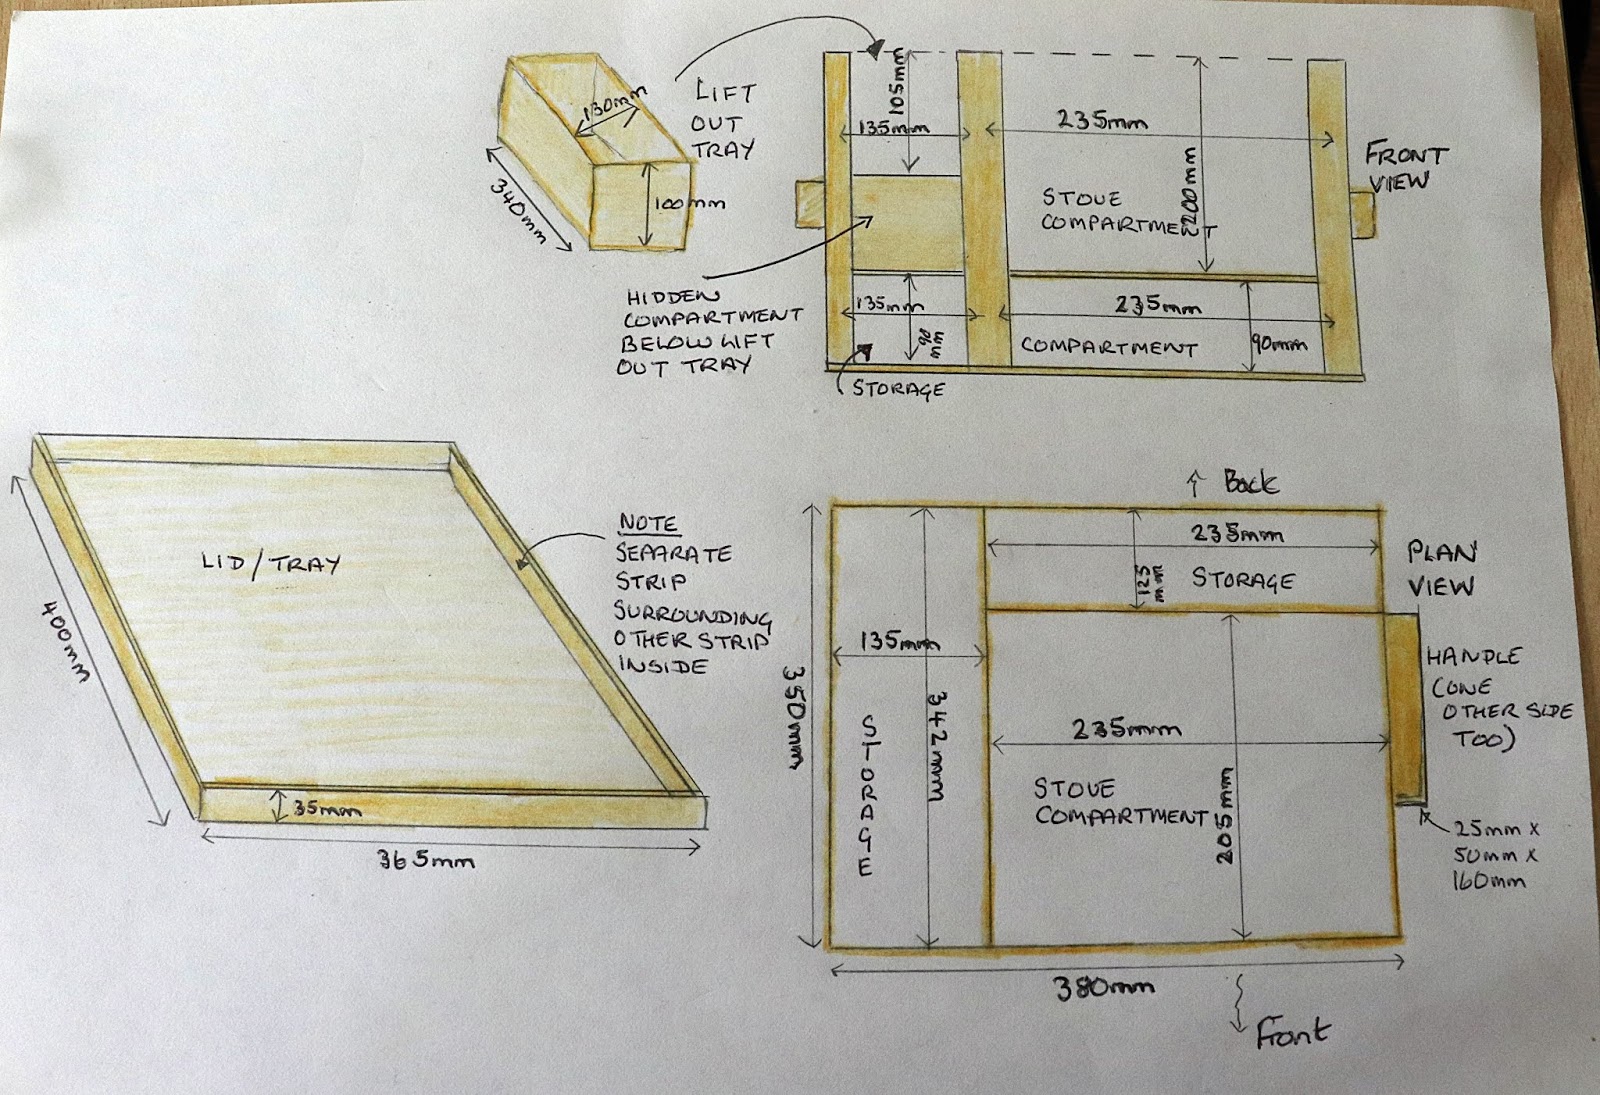 LIFT
OUT
TRAY
130mm
340mm
100mm
105mm
135mm
235mm
200mm
FRONT
VIEW
STOVE
COMPARTMENT
HIDDEN
COMPARTMENT
BELOW LIFT
OUT TRAY
135mm
90
mm
235mm
COMPARTMENT
90mm
STORAGE
LID/TRAY
400mm
35mm
365mm
NOTE
SEPARATE
STRIP
SURROUNDING
OTHER STRIP
INSIDE
Back
PLAN
VIEW
235mm
125
mm
STORAGE
135mm
350mm
342mm
STORAGE
235mm
STOVE
COMPARTMENT
205mm
HANDLE
(ONE
OTHER SIDE
TOO)
25mm x
50mm x
160mm
380mm
Front